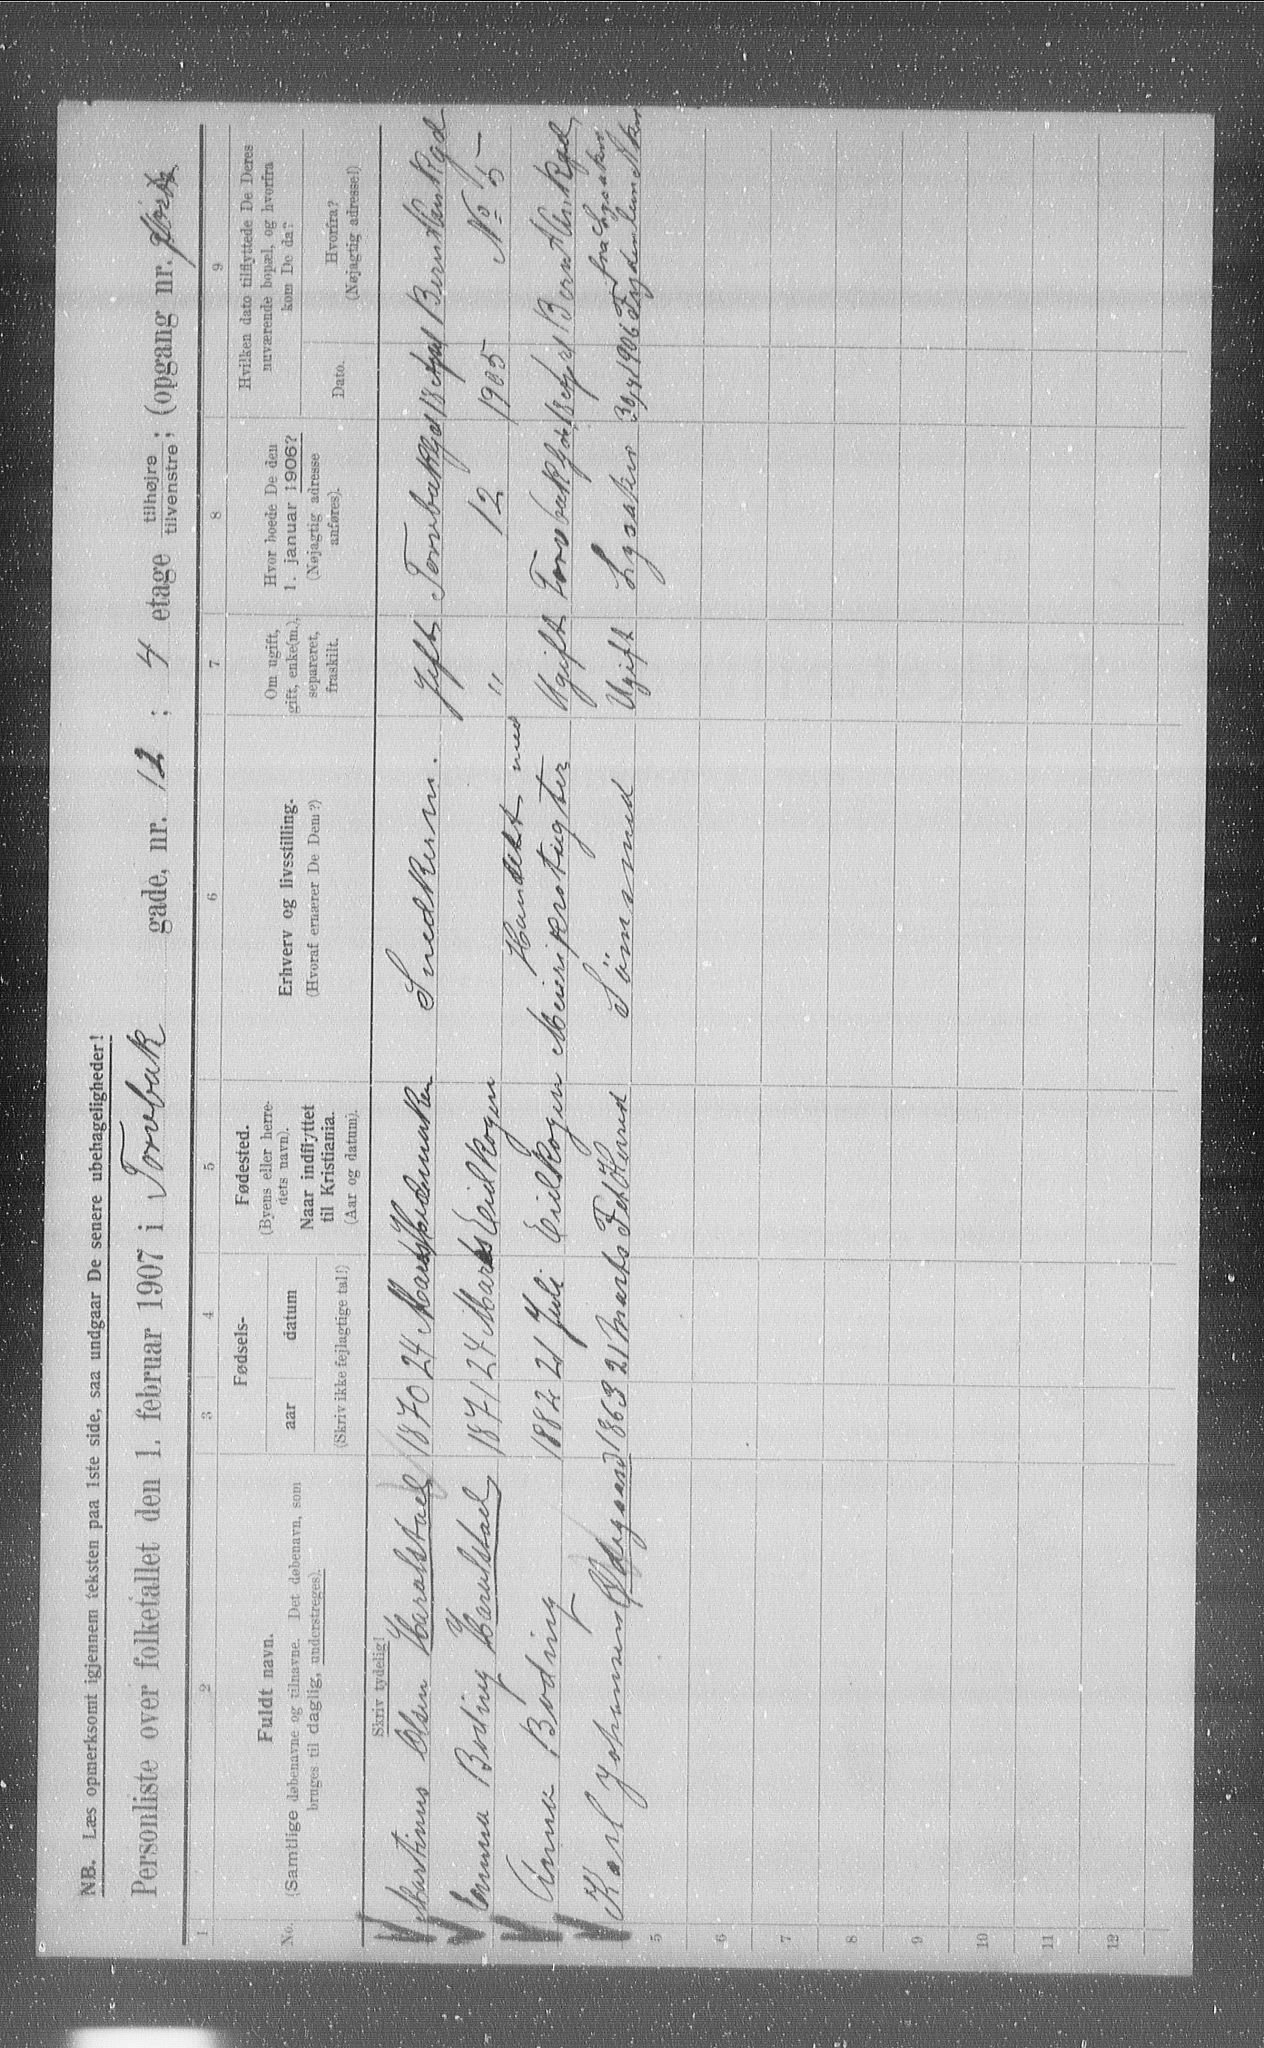 NB. Læs opmerksomt igjennem teksten paa 1ste side, saa undgaar De senere ubehageligheder!
Personliste over folketallet den 1. februar 1907 i Torvbak gade, nr. 12 ; 4 etage tilhøjre; tilvenstre; (opgang nr.
1 2 3 4 5 6 7 8 9
No.
Fuldt navn.
(Samtlige døbenavne og tilnavne. Det døbenavn, som
bruges til daglig, understreges).
Fødsels-
aar datum
(Skriv ikke fejlagtige tal!)
Fødested.
(Byens eller herre-
dets navn).
Naar indflyttet
til Kristiania.
(Aar og datum).
Erhverv og livsstilling.
(Hvoraf ernærer De Dem?)
Om ugift,
gift, enke(m.),
separeret,
fraskilt.
Hvor boede De den
1. januar 1906?
(Nøjagtig adresse
anføres).
Hvilken dato tilflyttede De Deres
nuværende bopæl, og hvorfra
kom De da?
Dato.
Hvorfra?
(Nøjagtig adresse!)
Skriv tydelig!
Martinus Olsen Haralstad 1870 24 Marts Hedemarken Snedkerm. Gift Torvbakgd Bernt Ankgd
Emma Boding Haralstad 1871 24 Marts Eidskogen " 12 1905 No 5
Handel med
Anna Boding 1882 21 Juli Eidskogen Meieriprodugter Ugift Torvbakgd Bernt Ankgd
fra Lysaker
Karl Johansen Ødegaard 1863 21 Marts Fet Herred Sömsmed Ugift Lysaker 1906
5
6
7
8
9
10
11
12